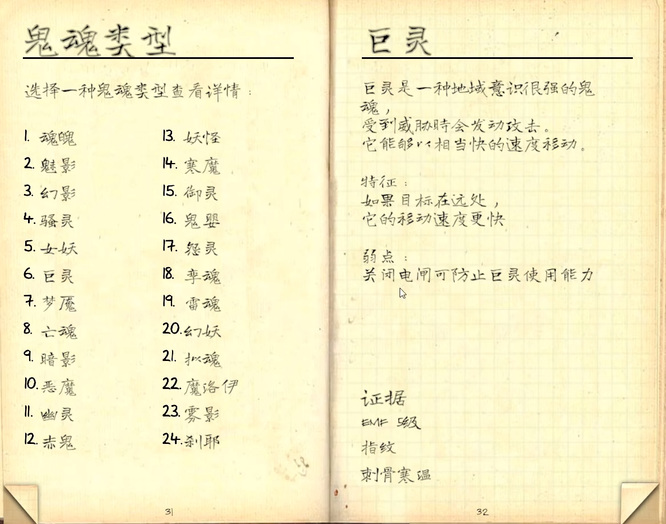 鬼魂类型
选择一种鬼魂类型查看详情：
1. 魂魄
2. 魅影
3. 幻影
4. 骚灵
5. 女妖
6. 巨灵
7. 梦魇
8. 亡魂
9. 暗影
10. 恶魔
11. 幽灵
12. 赤鬼
13. 妖怪
14. 寒魔
15. 御灵
16. 鬼婴
17. 怨灵
18. 孪魂
19. 雷魂
20. 幻妖
21. 拟魂
22. 魔洛伊
23. 雾影
24. 刹耶
31
巨灵
巨灵是一种地域意识很强的鬼
魂，
受到威胁时会发动攻击。
它能够以相当快的速度移动。
特征：
如果目标在远处，
它的移动速度更快
弱点：
关闭电闸可防止巨灵使用能力
证据
EMF 5级
指纹
刺骨寒温
32